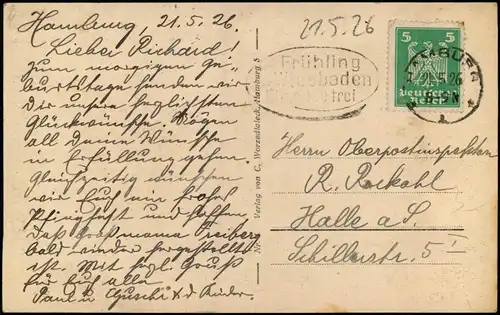 Hamburg 21.5.26.
Lieber Richard!
zum morgigen Ge-
burtstage senden wir
Dir unsere herzlichsten
Glückwünsche. Mögen
all deine Wünsche
in Erfüllung gehen.
Gleichzeitig wünschen
wir Euch ein frohes
Pfingstfest und hoffen,
daß Großmama Freiberg
bald wieder hergestellt
ist. Mit hzl. Gruß
für Euch alle
Paul u. Guschi & d. Kinder.
Verlag von C. Worzedialeck, Hamburg 5
21.5.26
Frühling
Wiesbaden
frei
5 5
Deutsches
Reich
HAMBURG
21.5.26
1
Herrn Oberpostinspektor
R. Rockohl
Halle a. S.
Schillerstr. 5 I